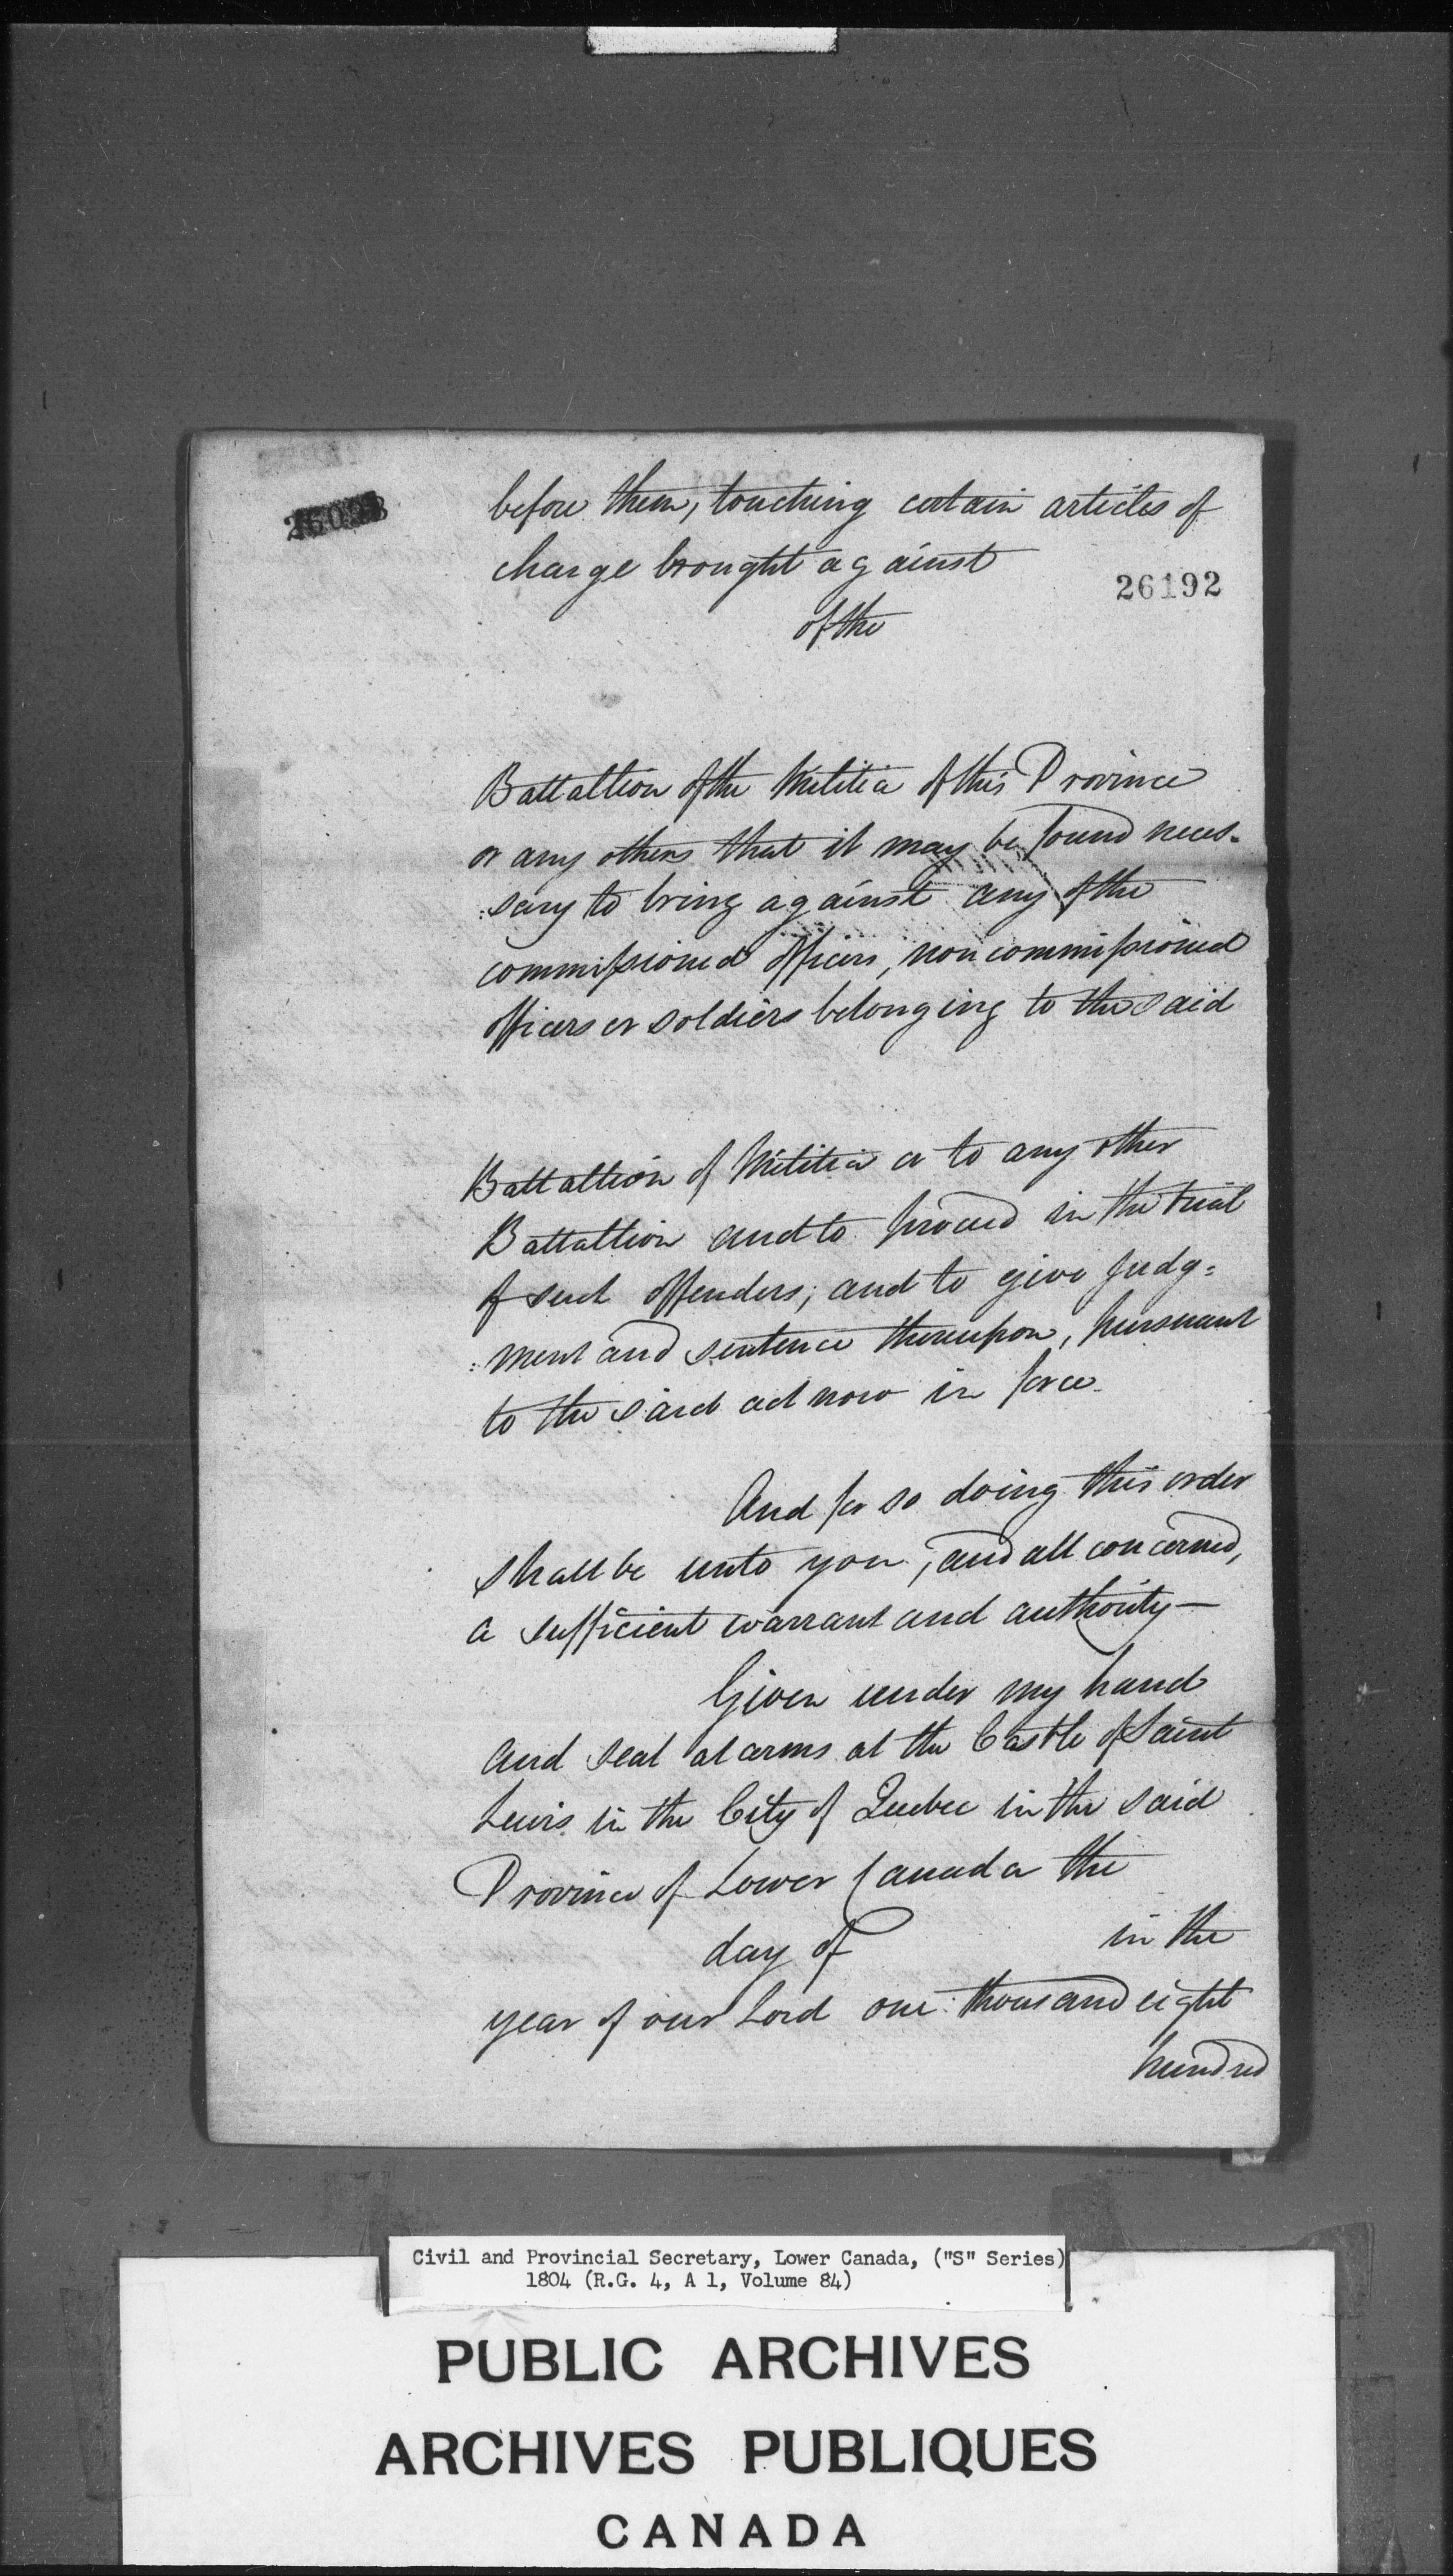 before them, touching certain articles of
charge brought against
26192
of the
Battaltion of the Militia of this Province
or any others that it may be found neces-
:sary to bring against any of the
commissioned officers, non commissioned
officers or soldiers belonging to the said
Battaltion of Militia or to any other
Battaltion and to proceed in the trial
of such offenders; and to give judg=
:ment and sentence thereupon, pursuant
to the said act now in force.
And for so doing this order
shall be unto you, and all concerned,
a sufficient warrant and authority—
Given under my hand
and seal at arms at the Castle of Saint
Lewis in the City of Quebec in the said
Province of Lower Canada the
day of in the
year of our Lord one thousand eight
hundred
Civil and Provincial Secretary, Lower Canada, ("S" Series)
1804 (R.G. 4, A 1, Volume 84)
PUBLIC ARCHIVES
ARCHIVES PUBLIQUES
CANADA